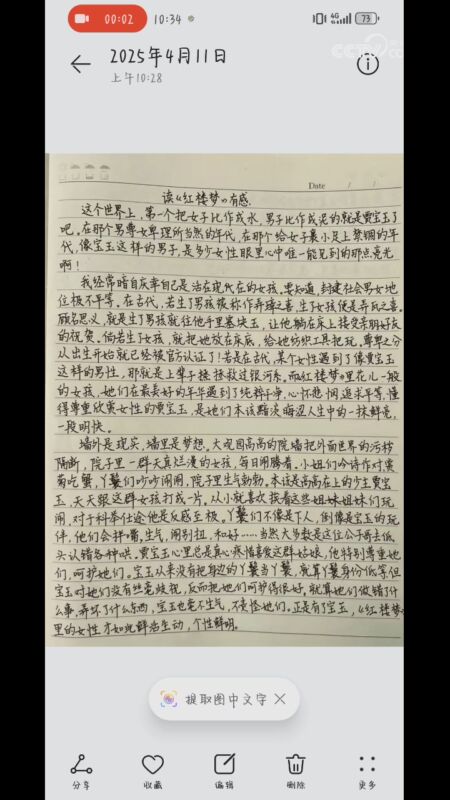 00:02 10:34 4G 73
CCTV
2025年4月11日
上午10:28
Date / /
读《红楼梦》有感
这个世界上,第一个把女子比作成水,男子比作成泥的就是贾宝玉了
吧。在那个男尊女卑理所当然的年代,在那个给女子裹小足上禁锢的年
代,像宝玉这样的男子,是多少女性眼里心中唯一能见到的那点亮光
啊!
我经常暗自庆幸自己是活在现代在的女孩。要知道,封建社会男女地
位极不平等。在古代,若生了男孩被称作弄璋之喜,生了女孩便是弄瓦之喜。
顾名思义,就是生了男孩就往他手里塞块玉,让他躺在床上接受亲朋好友
的祝贺。倘若生了女孩,就把她放在床底,给她纺织工具把玩。尊卑之分
从出生开始就已经被官方认证了!若是在古代,某个女性遇到了像贾宝玉
这样的男性,那就是上辈子操拯救过银河系。而《红楼梦》里花儿一般
的女孩,她们在最美好的年华遇到了纯粹干净、心怀悲悯追求平等、懂
得尊重欣赏女性的贾宝玉,是她们本该黯淡晦涩人生中的一抹鲜亮,
一段明快。
墙外是现实,墙里是梦想。大观园高高的院墙把外面世界的污秽
隔断,院子里一群天真烂漫的女孩,每日闹腾着。小姐们吟诗作对赏
菊吃蟹,丫鬟们吵吵闹闹,院子里生气勃勃。本该是高高在上的少主贾宝
玉,天天跟这群女孩打成一片。从小就喜欢挨着这些姐妹姐妹们玩
闹,对于科举仕途他是反感至极。丫鬟们不像是下人,倒像是宝玉的玩
伴,他们会拌嘴,生气,闹别扭,和好……当然大多数是这位公子哥去低
头认错各种哄。贾宝玉心里总是真心疼惜喜爱这群姑娘,他特别尊重她
们,呵护她们。宝玉从来没有把身边的丫鬟当丫鬟,就算丫鬟身份低等,但
宝玉对她们没有丝毫歧视,反而把她们呵护得很好,就算她们做错了什
么事,弄坏了什么东西,宝玉也毫不生气,不责怪她们。正是有了宝玉,《红楼梦》
里的女性才如此鲜活生动,个性鲜明。
提取图中文字
分享 收藏 编辑 删除 更多